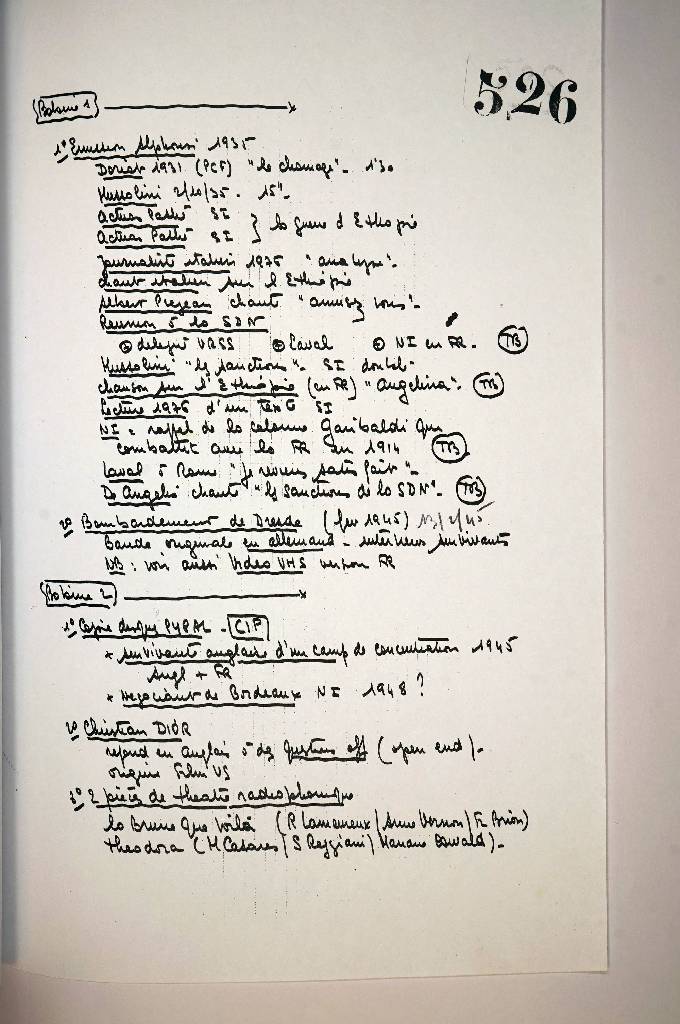 526
Bobine 1
1° Emission Alphonsi 1935
Doriot 1931 (PCF) "le chomage". 1'30
Mussolini 2/10/35. 15".
Actues Pathé SI
Actues Pathé SI } la guerre d'Ethiopie
Journaliste italien 1976 "analyse".
chant italien sur l'Ethiopie
Albert Prejean chante "amusez vous".
Reunion à la SDN
délégué URSS Laval NI en FR. TB
Mussolini "les sanctions". SI
chanson sur l'Ethiopie (en FR) "Angelina". TB
Lecture 1976 d'un texte SI
NI = rappel de la colonne Garibaldi qui
combattit avec la FR en 1914 TB
Laval à Rome "je reviens satisfait".
De Angelis chante "les sanctions de la SDN". TB
2° Bombardement de Dresde (fev 1945) 13/2/45
Bande originale en allemand - interviews survivants
NB : voir aussi Video VHS version FR
Bobine 2
1° Copie disque PYRAL - CIP
+ survivante anglaise d'un camp de concentration 1945
Angl + FR
+ Negociant de Bordeaux NI 1948 ?
2° Christian DIOR
repond en anglais à des questions off (open end).
origine Film US
3° 2 pièces de theatre radiophonique
la Brune que voilà (R Lamoureux / Anne Vernon / Fr. Brion)
theodora (M Casares / S Reggiani / Mariane Oswald).